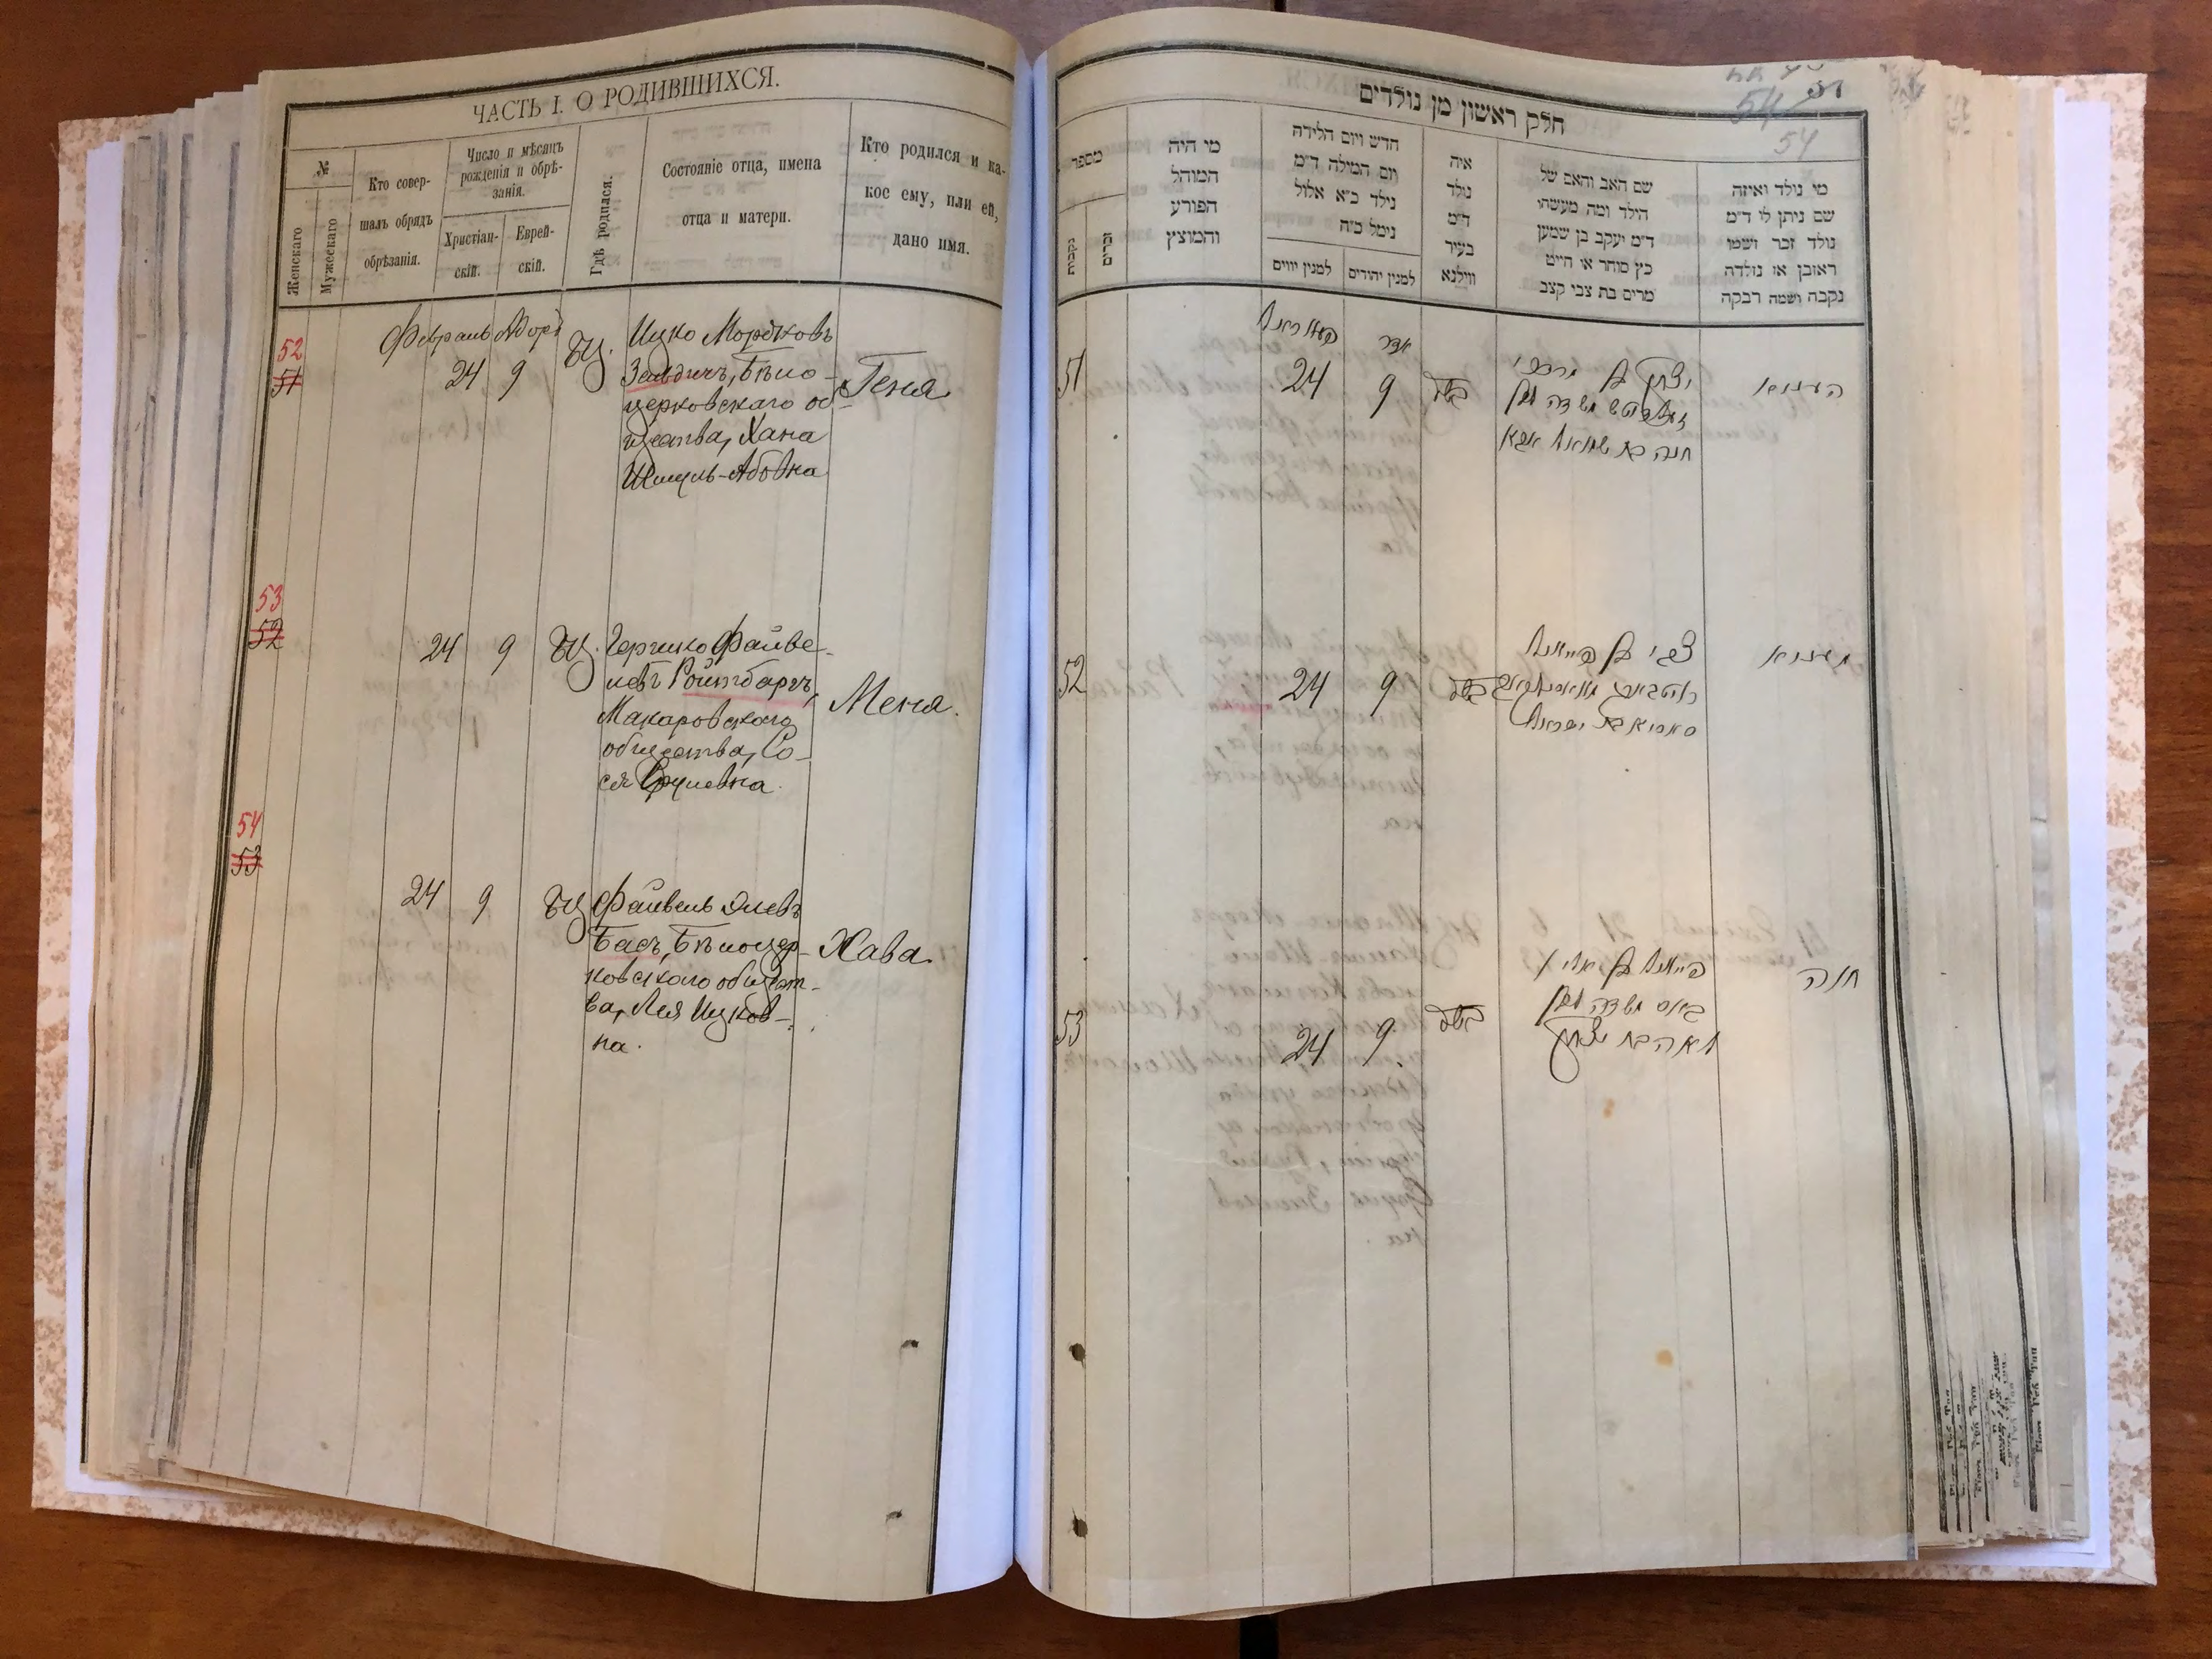 ЧАСТЬ I. О РОДИВШИХСЯ.
№
Женскаго
Мужескаго
Кто совер-
шалъ обрядъ
обрѣзанія.
Число и мѣсяцъ
рожденія и обрѣ-
занія.
Христіан-
скій.
Еврей-
скій.
Гдѣ родился.
Состояніе отца, имена
отца и матери.
Кто родился и ка-
кое ему, или ей,
дано имя.
Февраль Адоръ
52
51
24 9 БЦ.
Ицко Мордковъ
Зельдичъ, Бѣло-
церковскаго об-
щества, Хана
Шмуль-Абовна
Геня
53
52
24 9 БЦ.
Гершко Файве-
левъ Ройтбаргъ,
Макаровскаго
общества, Со-
ся Срулевна.
Меня.
54
53
24 9 БЦ
Файвель Элевъ
Басъ, Бѣлоцер-
ковскаго общест-
ва, Лея Ицков-
на.
Хава.
חלק ראשון מן נולדים
54
54
מספר
נקבות
זכרים
מי היה
המוהל
הפורע
והמוצץ
חדש ויום הלידה
ויום המילה ד״מ
נילד כ״א אלול
נימל כ״ח
למנין יווים
למנין יהודים
איה
נולד
ד״מ
בעיר
ווילנא
שם האב והאם של
הילד ומה מעשהו
ד״מ יעקב בן שמען
כץ סוחר או חייט
מרים בת צבי קצב
מי נולד ואיזה
שם ניתן לו ד״מ
נולד זכר ושמו
ראובן או נולדה
נקבה ושמה רבקה
אדר
51
24 9
יצחק בן מרדכי
חנה בת שמואל אבא
העניא
52
24 9
צבי בן פייוול
סאסיא בת ישראל
מעניא
53
24 9
פייוול בן אלי
לאה בת יצחק
חוה